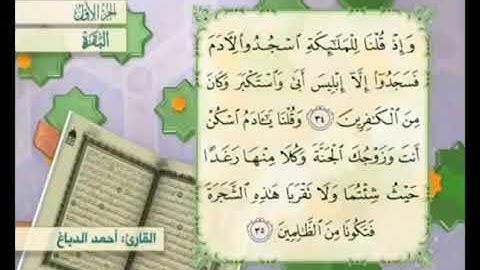 الجزء الأول
البقرة
وَإِذْ قُلْنَا لِلْمَلَٰٓئِكَةِ ٱسْجُدُوا۟ لِـَٔادَمَ
فَسَجَدُوٓا۟ إِلَّآ إِبْلِيسَ أَبَىٰ وَٱسْتَكْبَرَ وَكَانَ
مِنَ ٱلْكَٰفِرِينَ ٣٤ وَقُلْنَا يَٰٓـَٔادَمُ ٱسْكُنْ
أَنتَ وَزَوْجُكَ ٱلْجَنَّةَ وَكُلَا مِنْهَا رَغَدًا
حَيْثُ شِئْتُمَا وَلَا تَقْرَبَا هَٰذِهِ ٱلشَّجَرَةَ
فَتَكُونَا مِنَ ٱلظَّٰلِمِينَ ٣٥
القارئ: أحمد الدباغ